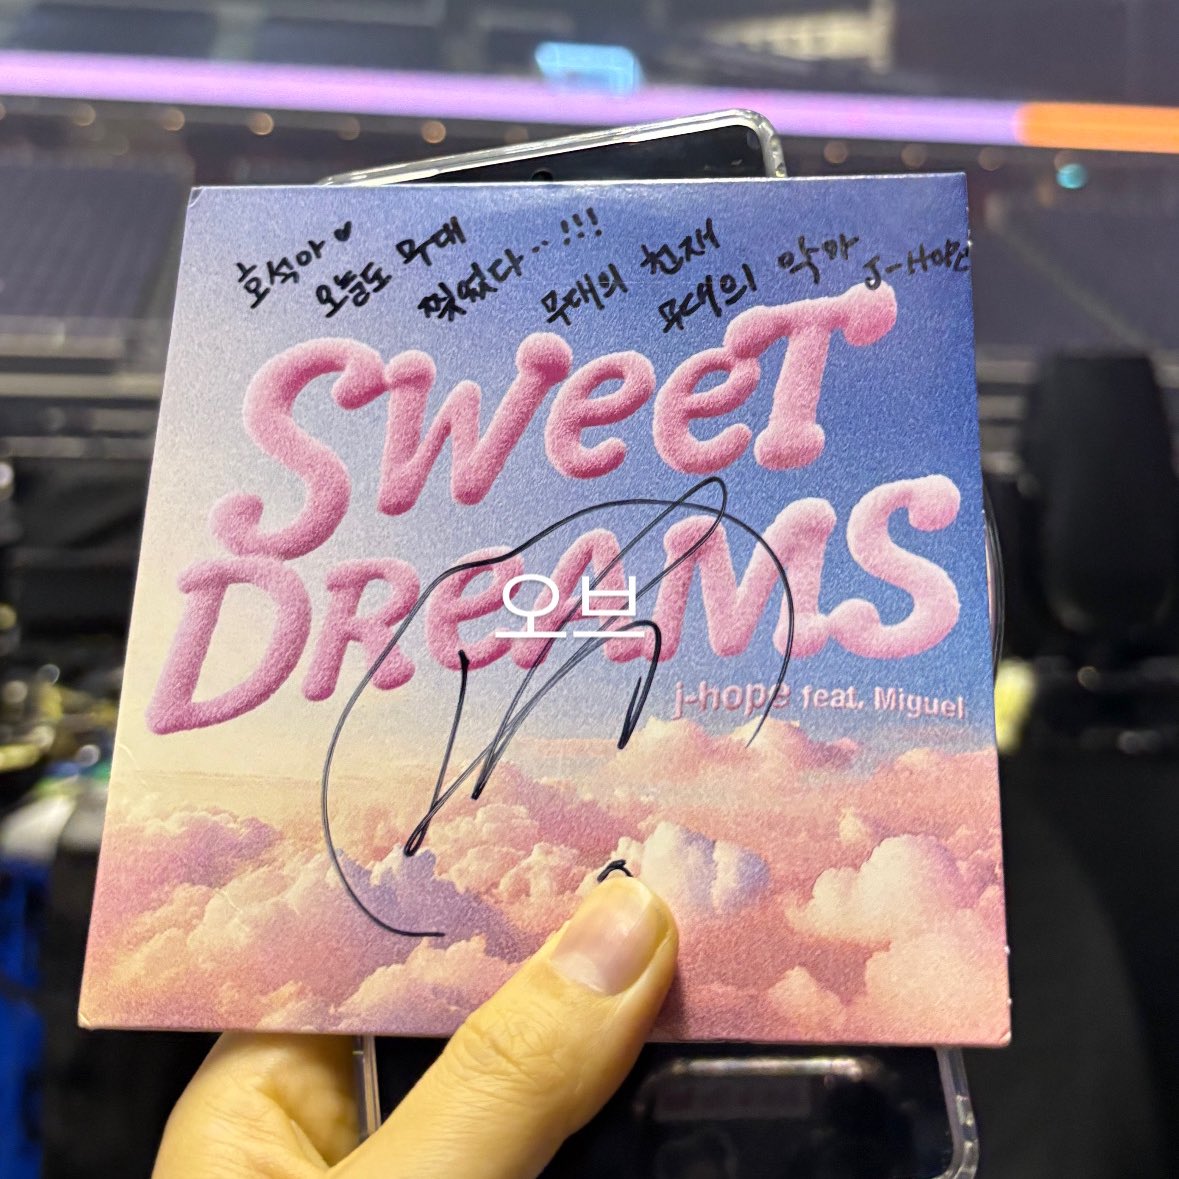 호석아 ♥
오늘도 무대
찢었다...!!!
무대의 천재
무대의 악마 J-HOPE
SWEET
DREAMS
오브
j-hope feat. Miguel